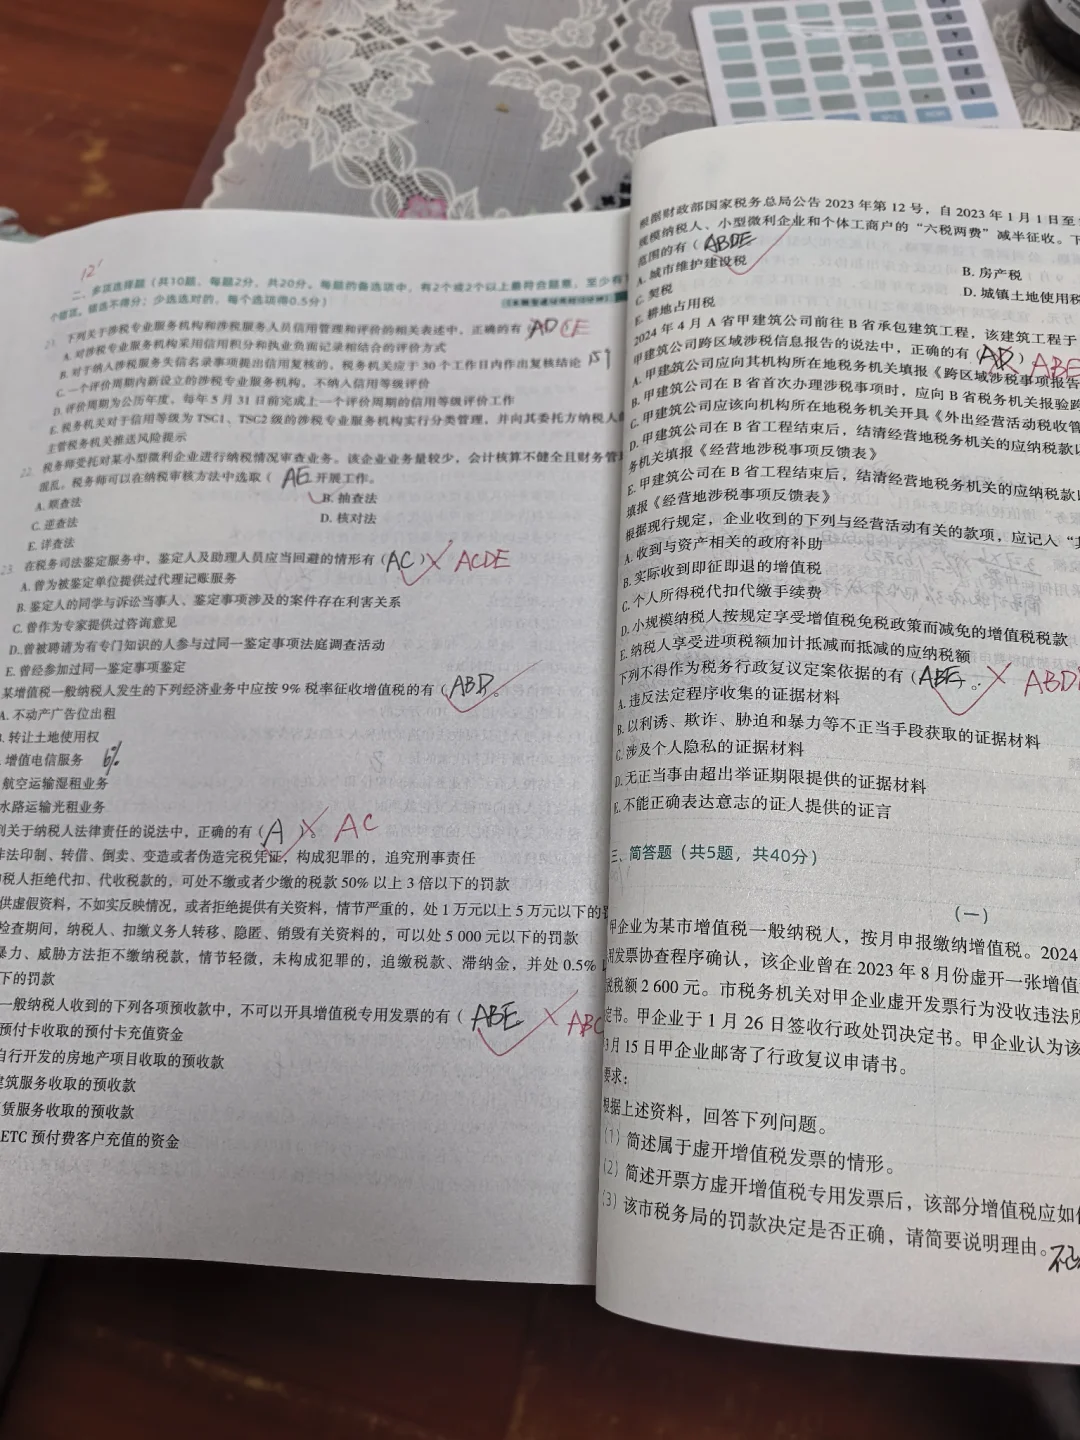 12'
二、多项选择题（共10题，每题2分，共20分。每题的备选项中，有2个或2个以上最符合题意，至少有
个错项。错选不得分；少选选对的，每个选项得0.5分）
21. 下列关于涉税专业服务机构和涉税服务人员信用管理和评价的相关表述中，正确的有（ AD CE
A. 对涉税专业服务机构采用信用积分和执业负面记录相结合的评价方式
B. 对于纳入涉税服务失信名录事项提出信用复核的，税务机关应于 30 个工作日内作出复核结论
C. 一个评价周期内新设立的涉税专业服务机构，不纳入信用等级评价
D. 评价周期为公历年度，每年 5 月 31 日前完成上一个评价周期的信用等级评价工作
E. 税务机关对于信用等级为 TSC1、TSC2 级的涉税专业服务机构实行分类管理，并向其委托方纳税人
主管税务机关推送风险提示
22. 税务师受托对某小型微利企业进行纳税情况审查业务。该企业业务量较少，会计核算不健全且财务管
混乱。税务师可以在纳税审核方法中选取（ AE 开展工作。
A. 顺查法
B. 抽查法
C. 逆查法
D. 核对法
E. 详查法
23. 在税务司法鉴定服务中，鉴定人及助理人员应当回避的情形有（AC） ACDE
A. 曾为被鉴定单位提供过代理记账服务
B. 鉴定人的同学与诉讼当事人、鉴定事项涉及的案件存在利害关系
C. 曾作为专家提供过咨询意见
D. 曾被聘请为有专门知识的人参与过同一鉴定事项法庭调查活动
E. 曾经参加过同一鉴定事项鉴定
某增值税一般纳税人发生的下列经济业务中应按 9% 税率征收增值税的有（ABD）。
A. 不动产广告位出租
. 转让土地使用权
增值电信服务 6%
航空运输湿租业务
水路运输光租业务
列关于纳税人法律责任的说法中，正确的有（A）。 AC
非法印制、转借、倒卖、变造或者伪造完税凭证，构成犯罪的，追究刑事责任
纳税人拒绝代扣、代收税款的，可处不缴或者少缴的税款 50% 以上 3 倍以下的罚款
供虚假资料，不如实反映情况，或者拒绝提供有关资料，情节严重的，处 1 万元以上 5 万元以下的罚
检查期间，纳税人、扣缴义务人转移、隐匿、销毁有关资料的，可以处 5 000 元以下的罚款
暴力、威胁方法拒不缴纳税款，情节轻微，未构成犯罪的，追缴税款、滞纳金，并处 0.5%
下的罚款
一般纳税人收到的下列各项预收款中，不可以开具增值税专用发票的有（ ABE ABC
预付卡收取的预付卡充值资金
自行开发的房地产项目收取的预收款
建筑服务收取的预收款
赁服务收取的预收款
ETC 预付费客户充值的资金
根据财政部国家税务总局公告 2023 年第 12 号，自 2023 年 1 月 1 日至
规模纳税人、小型微利企业和个体工商户的“六税两费”减半征收。下
范围的有（ABDE
A. 城市维护建设税
B. 房产税
C. 契税
D. 城镇土地使用税
E. 耕地占用税
2024 年 4 月 A 省甲建筑公司前往 B 省承包建筑工程，该建筑工程于
甲建筑公司跨区域涉税信息报告的说法中，正确的有（AB） ABE
A. 甲建筑公司应向其机构所在地税务机关填报《跨区域涉税事项报告
B. 甲建筑公司在 B 省首次办理涉税事项时，应向 B 省税务机关报验跨
C. 甲建筑公司应该向机构所在地税务机关开具《外出经营活动税收管
D. 甲建筑公司在 B 省工程结束后，结清经营地税务机关的应纳税款以
务机关填报《经营地涉税事项反馈表》
E. 甲建筑公司在 B 省工程结束后，结清经营地税务机关的应纳税款以
填报《经营地涉税事项反馈表》
根据现行规定，企业收到的下列与经营活动有关的款项，应记入“其
A. 收到与资产相关的政府补助
B. 实际收到即征即退的增值税
C. 个人所得税代扣代缴手续费
D. 小规模纳税人按规定享受增值税免税政策而减免的增值税税款
E. 纳税人享受进项税额加计抵减而抵减的应纳税额
下列不得作为税务行政复议定案依据的有（ABE）。 ABD
A. 违反法定程序收集的证据材料
B. 以利诱、欺诈、胁迫和暴力等不正当手段获取的证据材料
C. 涉及个人隐私的证据材料
D. 无正当事由超出举证期限提供的证据材料
E. 不能正确表达意志的证人提供的证言
三、简答题（共5题，共40分）
（一）
甲企业为某市增值税一般纳税人，按月申报缴纳增值税。2024
用发票协查程序确认，该企业曾在 2023 年 8 月份虚开一张增值
税额 2 600 元。市税务机关对甲企业虚开发票行为没收违法所
定书。甲企业于 1 月 26 日签收行政处罚决定书。甲企业认为该
3月 15 日甲企业邮寄了行政复议申请书。
要求：
根据上述资料，回答下列问题。
（1）简述属于虚开增值税发票的情形。
（2）简述开票方虚开增值税专用发票后，该部分增值税应如
（3）该市税务局的罚款决定是否正确，请简要说明理由。